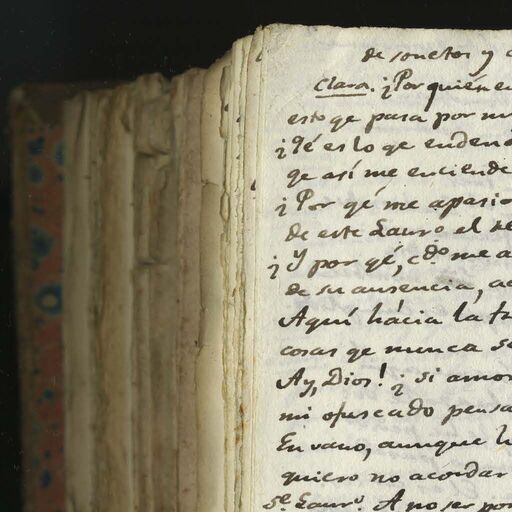 de sonetos y c
Clara. ¡Por quién e
esto qe pasa por m
¡Qé es lo qe enden
qe así me enciende
¡Por qé me apasio
de este Lauro el
¡Y por qé, cdo me a
de su ausencia, a
Aquí hácia la f
cosas qe nunca s
Ay, Dios! ¡si amor
mi ofuscado pensa
En vano, aunque h
quiero no acordar
Se. Lauro. A no ser por